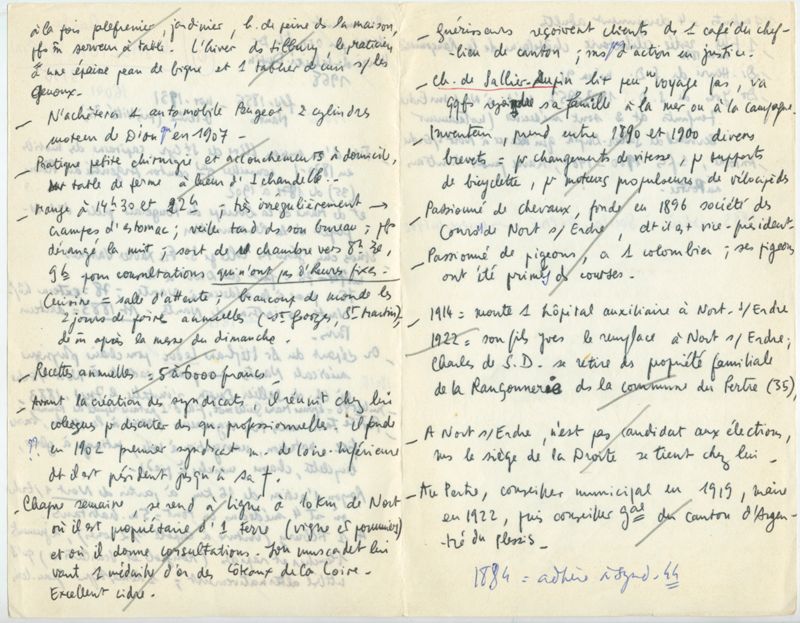 à la fois palefrenier, jardinier, h. de peine ds la maison,
pfs m serveur à table. L'hiver ds tilbury, le praticien
a une épaisse peau de bique et 1 tablier de cuir s/les
genoux.
- N'achètera 1 automobile Peugeot 2 cylindres
moteur de Dion qu'en 1907 -
- Pratique petite chirurgie et accouchements à domicile,
sur table de ferme à lueur d'1 chandelle -
- mange à 14h30 et 22h - très irrégulièrement →
crampes d'estomac ; veille tard ds son bureau ; pfs
dérangé la nuit ; sort de sa chambre vers 8h30,
9h pour consultations qui n'ont pas d'heures fixes -
(cuisine = salle d'attente ; beaucoup de monde les
2 jours de foire annuelles (St Georges St Martin),
de m après la messe du dimanche.
- Recettes annuelles = 5 à 6000 francs
- Avant la création des syndicats, il réunit chez lui
collègues pr discuter des qu. professionnelles. il fonde
?? en 1902 premier syndicat m. de Loire-Inférieure
dt il est président jusqu'à sa †.
- Chaque semaine, se rend à Ligné à 10 km de Nort
où il est propriétaire d'1 terre (vigne et pommiers)
et où il donne consultations. Son muscadet lui
vaut 1 médaille d'or des Côteaux de la Loire -
Excellent cidre.
- Guérisseurs reçoivent clients ds 1 café du chef-
-lieu de canton ; ms pas d'action en justice.
- Ch. de Sallier-Dupin lit peu, ni voyage pas, va
qqfs rejoindre sa famille à la mer ou à la campagne.
- Inventeur, prend entre 1890 et 1900 divers
brevets = pr changements de vitesse, pr supports
de bicyclette, pr moteurs propulseurs de vélocipèdes
- Passionné de chevaux, fonde en 1896 société des
Courses de Nort s/Erdre, dt il est vice-président.
- Passionné de pigeons, a 1 colombier ; ses pigeons
ont été primés ds courses.
- 1914 = monte 1 hôpital auxiliaire à Nort s/Erdre
- 1922 = son fils Yves le remplace à Nort s/Erdre ;
Charles de S.D. se retire ds propriété familiale
de la Rangonnerie ds la commune du Pertre (35),
- A Nort s/Erdre, n'est pas candidat aux élections,
ms le siège de la Droite se tient chez lui -
- Au Pertre, conseiller municipal en 1919, maire
en 1922, puis conseiller gal du canton d'Argen-
-tré du Plessis -
1884 = adhère à Synd. 44